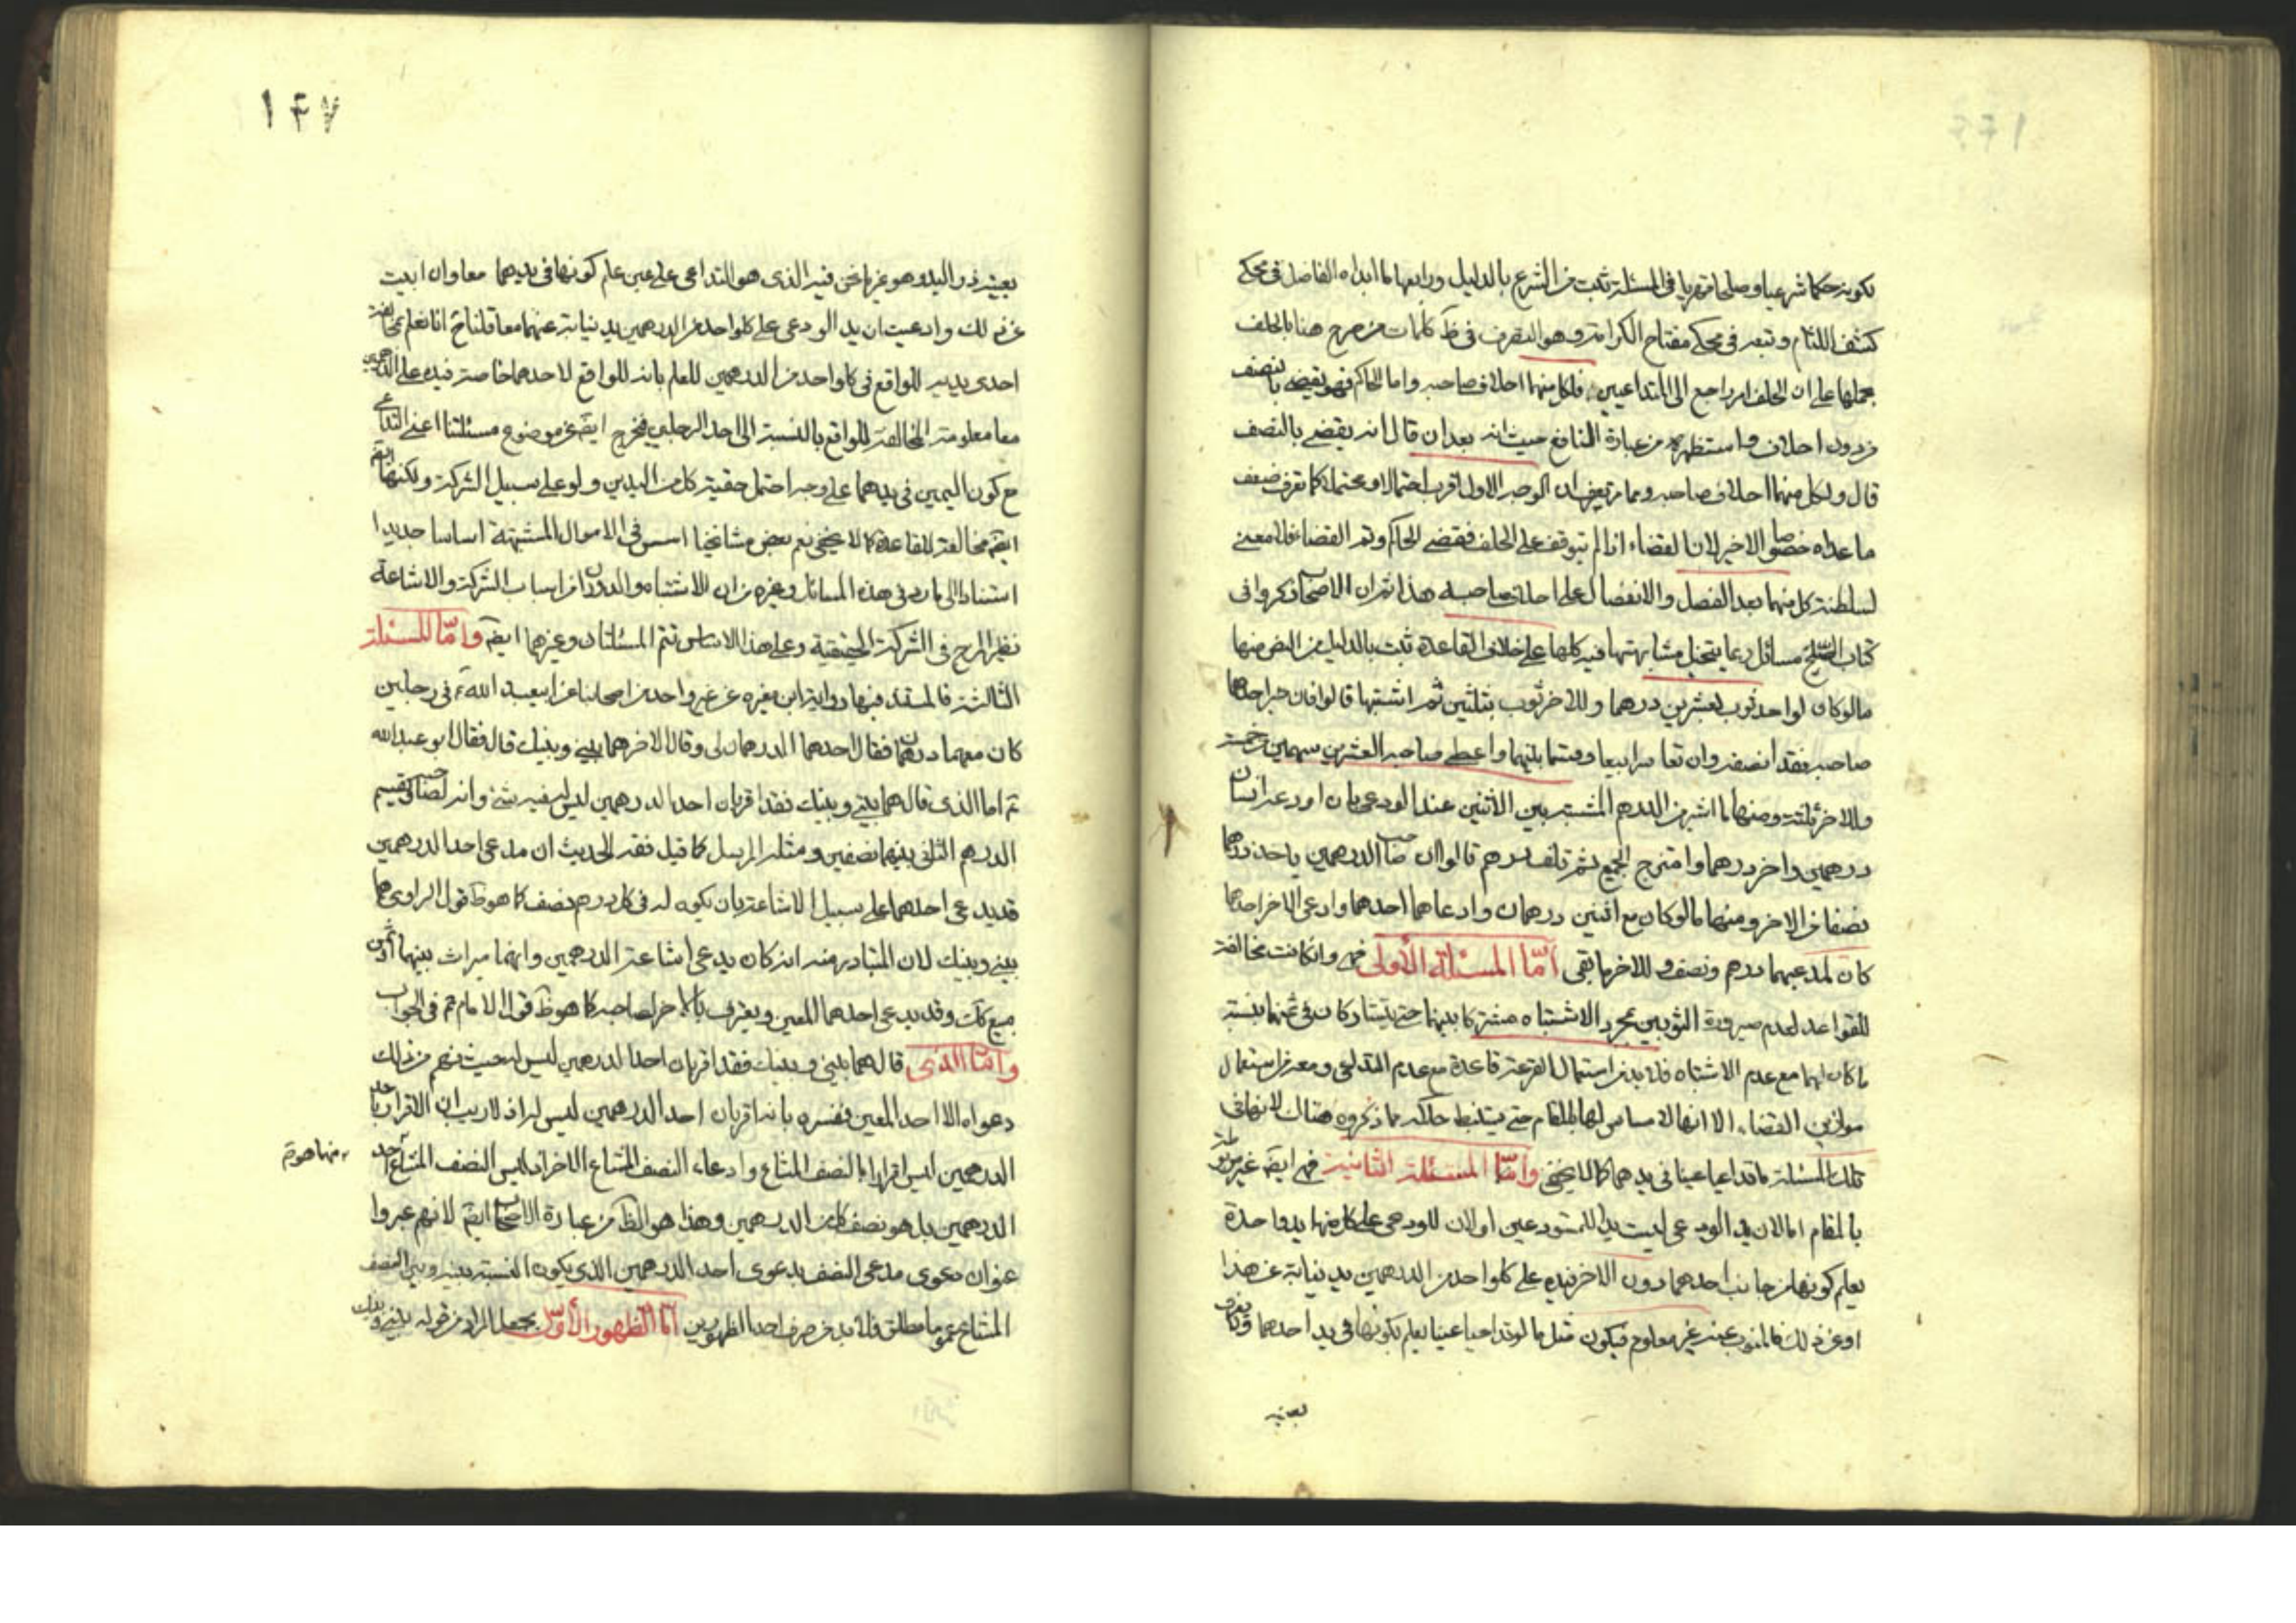 بكونه حكما شرعيا وصلحا قهريا في المسئلة ثبت من الشرع بالدليل ورابعها ما ابداه الفاضل في محكي
كشف اللثام وتبعه في محكي مفتاح الكرامة وهو التصرف في ظ كلمات من صرح هنا بالحلف
بحملها على ان الحلف امر راجع الى المتداعيين فلكل منهما احلاف صاحبه واما الحاكم فهو يقضي بالنصف
من دون احلاف واستظهره من عبارة النافع حيث انه بعد ان قال انه يقضي بالنصف
قال ولكل منهما احلاف صاحبه ومما مر تعرف ان الوجه الاول اقرب احتمالا ومحتملا كما تعرف ضعف
ما عداه خصوصا الاخير لان القضاء اذا لم يتوقف على الحلف فقضى الحاكم وتم القضاء فلا معنى
لسلطنة كل منهما بعد الفصل والانفصال على احلاف صاحبه هذا ثم ان الاصحاب ذكروا في
كتاب الصلح مسائل ربما يتخيل مشابهتها فيه كلها على خلاف القاعدة ثبت بالدليل من النص منها
ما لو كان لواحد ثوب بعشرين درهما وللاخر ثوب بثلثين ثم اشتبها قالوا فان خير احدهما
صاحبه فقد انصفه وان تعاسرا بيعا وقسما بينهما واعطى صاحب العشرين سهمين من خمسة
وللاخر ثلثة ومنها ما اشير من الدرهم المشتبه بين الاثنين عند الودعي بان اودعه انسان
درهمين واخر درهما وامتزج الجميع ثم تلف درهم قالوا ان صاحب الدرهمين ياخذ درهما
ونصفا من الاخر ومنها ما لو كان مع اثنين درهمان وادعاهما احدهما وادعى الاخر احدهما
كان لمدعيهما درهم ونصف وللاخر ما بقي أمّا المسئلة الأولى فهي وان كانت مخالفة
للقواعد لعدم صيرورة الثوبين بمجرد الاشتباه مشتركا بينهما حتى يتشاركان في ثمنهما بنسبة
ما كان لهما مع عدم الاشتباه فلا بد من استعمال القرعة قاعدة مع عدم التداعي ومعه من استعمال
موازين القضاء الا انها لا مساس لها بالمقام حتى يستنبط حكمه مما ذكروه هناك لانها في
تلك المسئلة ما تداعيا عينا في يدهما كما لا يخفى وأمّا المسئلة الثانية فهي ايضا غير مربوطة
بالمقام اما لان يد الودعي ليست يدا للمستودعين او لان للودعي على كل منهما يد واحدة
يعلم كونها من جانب احدهما دون الاخر فيده على كل واحد من الدرهمين يد نيابة عن هذا
او عن ذلك فالمنوب عنه غير معلوم فيكون مثل ما لو تداعيا عينا يعلم بكونها في يد احدهما وكان
بعينه ذو اليد وهو غير ما نحن فيه الذي هو التداعي على عين علم كونها في يديهما معا وان ابيت
عن ذلك وادعيت ان يد الودعي على كل واحد من الدرهمين يد نيابة عنهما معا قلنا ح انا نعلم بمخالفة
احدى يديه للواقع في كل واحد من الدرهمين للعلم بانه للواقع لاحدهما خاصة فيده على الدرهمين
معا معلومة المخالفة للواقع بالنسبة الى احد الرجلين فخرج ايضا عن موضوع مسئلتنا اعني التداعي
مع كون العين في يدهما على وجه احتمل حقية كل من اليدين ولو على سبيل الشركة ولكنها
ايضا مخالفة للقاعدة كما لا يخفى نعم بعض مشايخنا اسس في الاموال المشتبهة اساسا جديدا
استنادا الى ما ورد في هذه المسائل وغيره من ان الاشتباه والدوران من اسباب الشركة والاشاعة
نظير المزج في الشركة الحقيقية وعلى هذا الاساس تتم المسئلتان وغيرهما ايضا وأمّا المسئلة
الثالثة فالمستند فيها رواية ابن مغيرة عن غير واحد من اصحابنا عن ابي عبد الله ع في رجلين
كان معهما درهمان فقال احدهما الدرهمان لي وقال الاخر هما بيني وبينك قال فقال ابو عبد الله
ع اما الذي قال هما بيني وبينك فقد اقر بان احد الدرهمين ليس له فيه شئ وانه لصاحبه ويقسم
الدرهم الثاني بينهما نصفين ومثله المرسل كما قيل فقه الحديث ان مدعي احد الدرهمين
قد يدعي احدهما على سبيل الاشاعة بان يكون له في كل درهم نصف كما هو ظ قول الراوي هما
بيني وبينك لان المتبادر منه انه كان يدعي اشاعة الدرهمين وانهما ميراث بينهما
وقد يدعي احدهما المعين ويعترف بالاخر لصاحبه كما هو ظ قول الامام ع في الجواب
وأمّا الذي قال هما بيني وبينك فقد اقر بان احد الدرهمين ليس له حيث فهم من ذلك
دعواه الا احد المعين ففسره بانه اقر بان احد الدرهمين ليس له اذ لا ريب ان الاقرار باحد
الدرهمين ليس اقرارا بالنصف المشاع وادعاء النصف المشاع الاخر اذ ليس النصف المشاع احد
منهما هو
الدرهمين بل هو نصف كل من الدرهمين وهذا هو الظ من عبارة الاصحاب ايضا لانهم عبروا
عنوان دعوى مدعي النصف بدعوى احد الدرهمين الذي يكون النسبة بينه وبين النصف
المشاع عموما مطلق فلا بد من صرف احد الظهورين أمّا الظهور الأوّل بجعل المراد من قوله بيني وبينك
بعينه
١۴٧